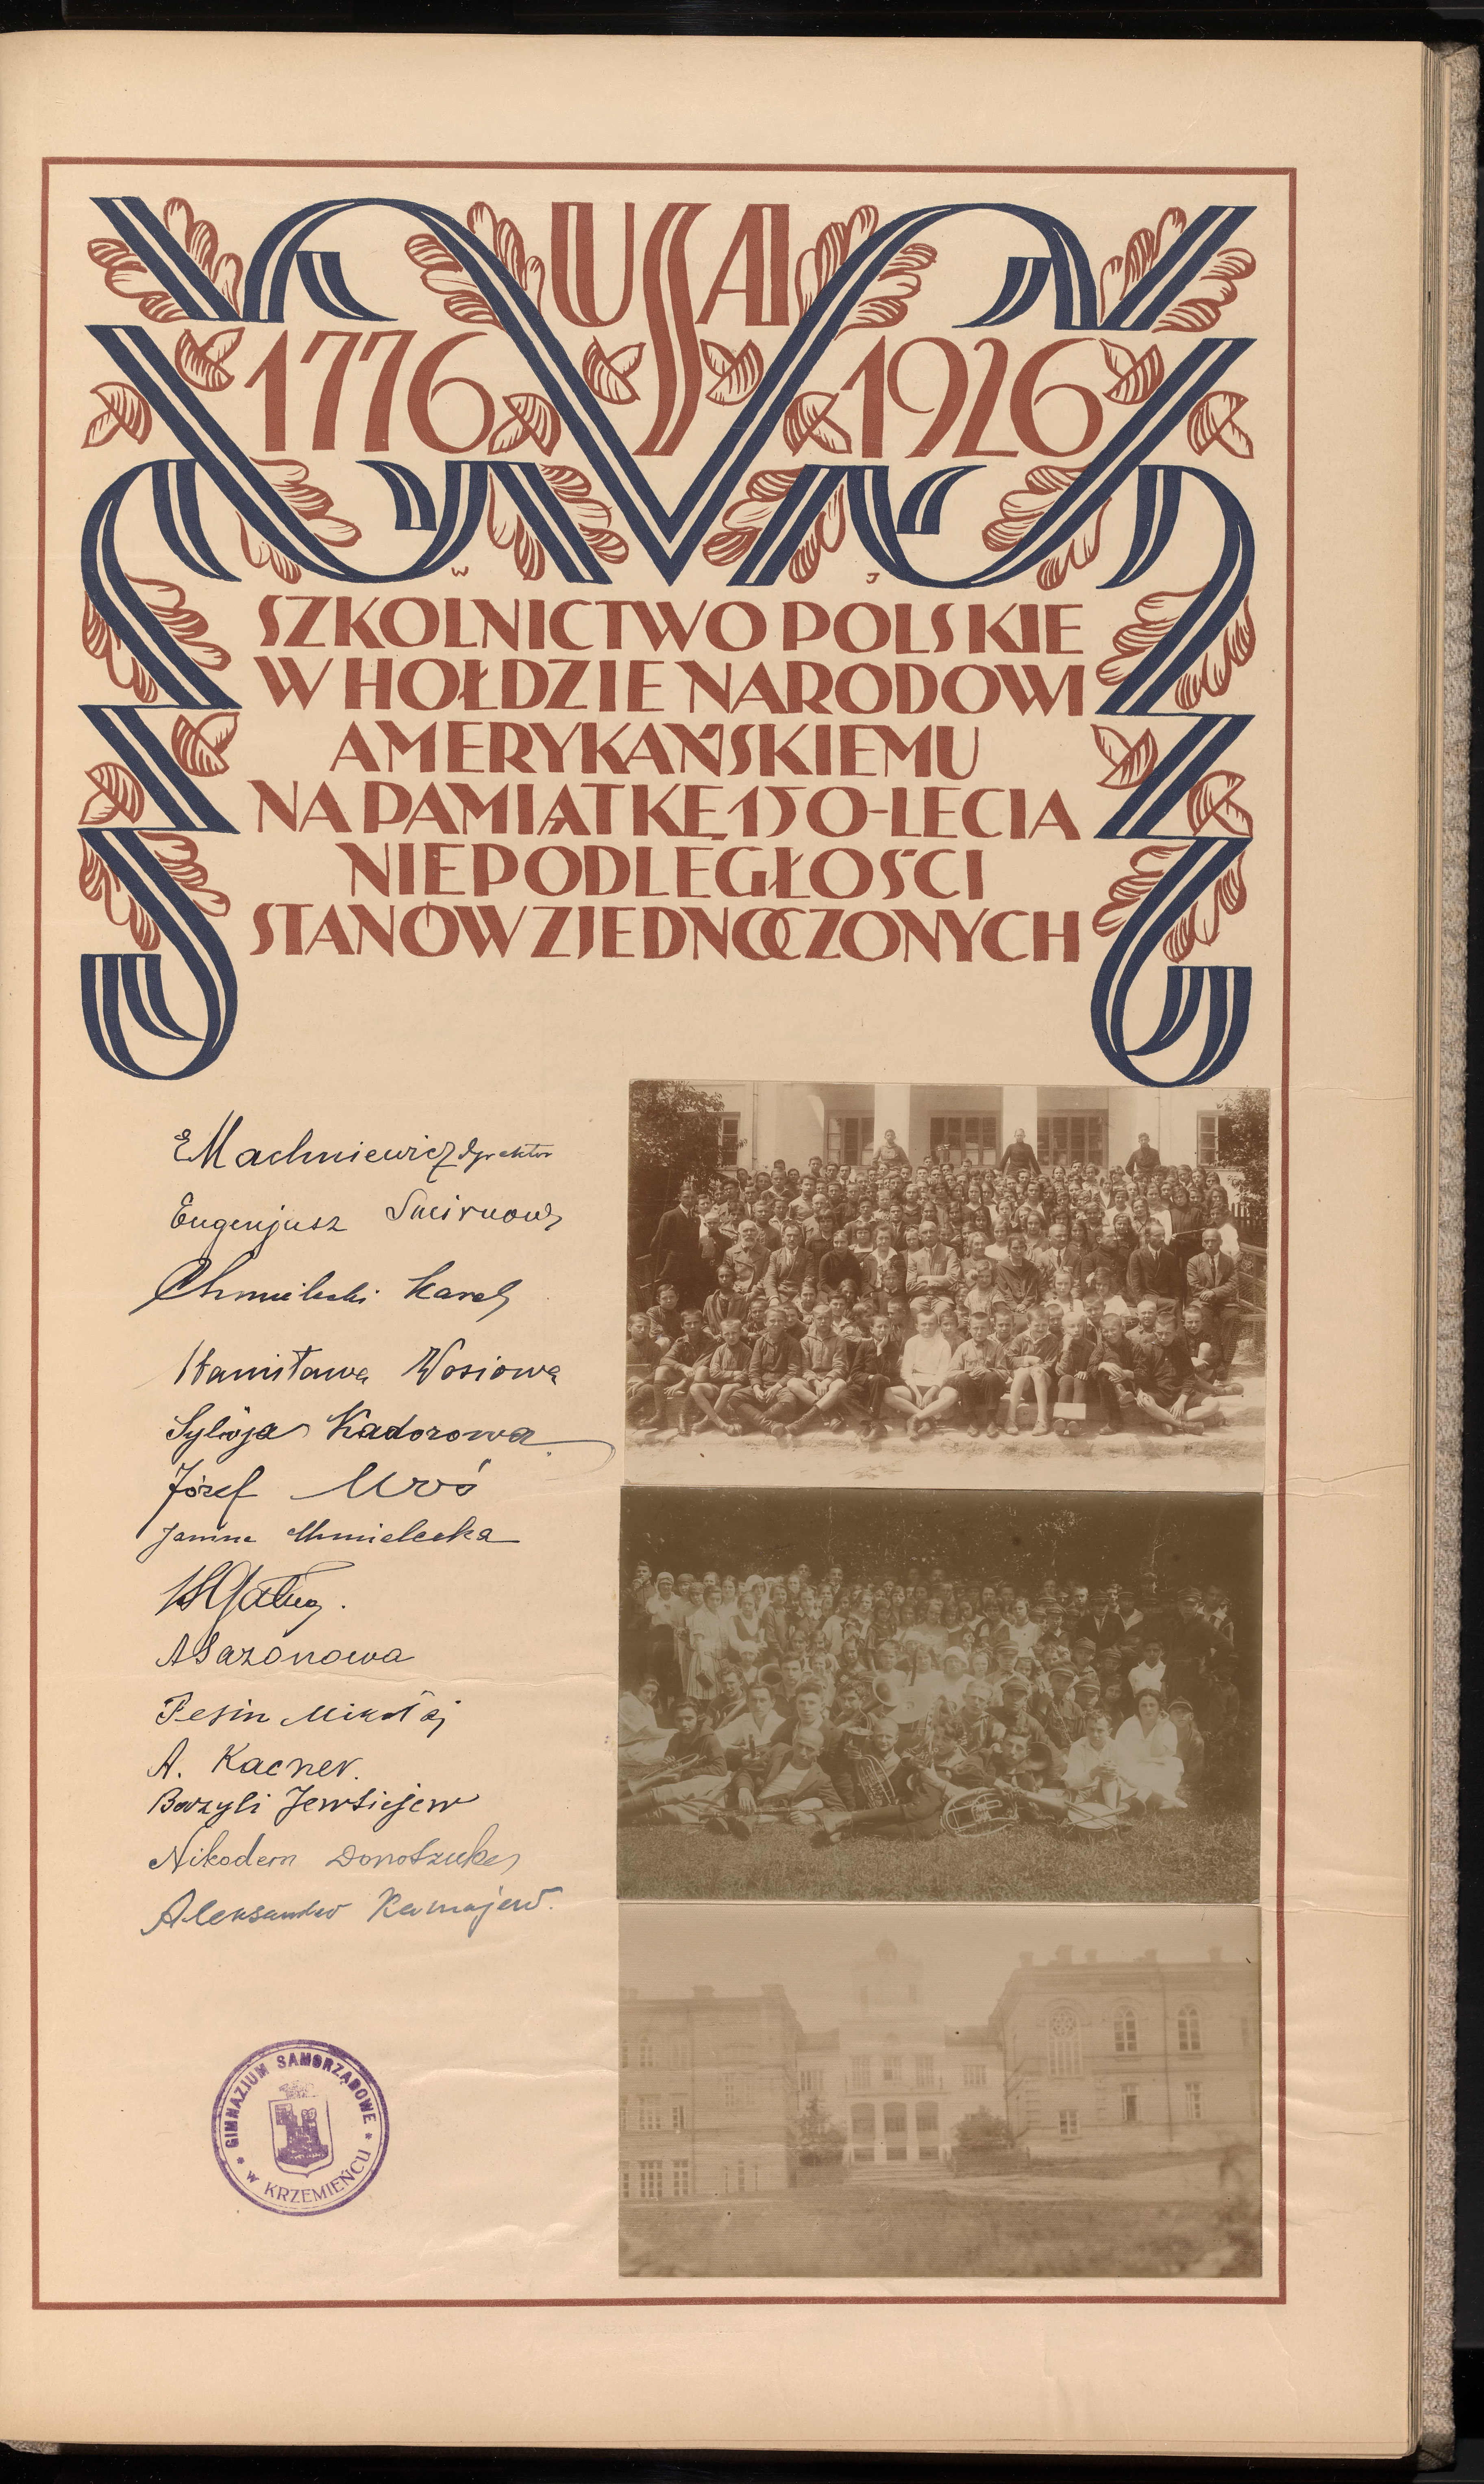 USA
1776 1926
W J
SZKOLNICTWO POLSKIE
W HOŁDZIE NARODOWI
AMERYKAŃSKIEMU
NA PAMIĄTKĘ 150-LECIA
NIEPODLEGŁOŚCI
STANÓW ZJEDNOCZONYCH
E Machniewicz dyrektor
Eugenjusz Smirnow
Chmielecki Karol
Stanisława Wosiowa
Sylwja Kadorowa
Józef
Janina Chmielecka
ASazonowa
Pesin Mikołaj
A. Kacner.
Bazyli Jewsiejew
Nikodem
Aleksander
GIMNAZJUM SAMORZĄDOWE
w KRZEMIEŃCU